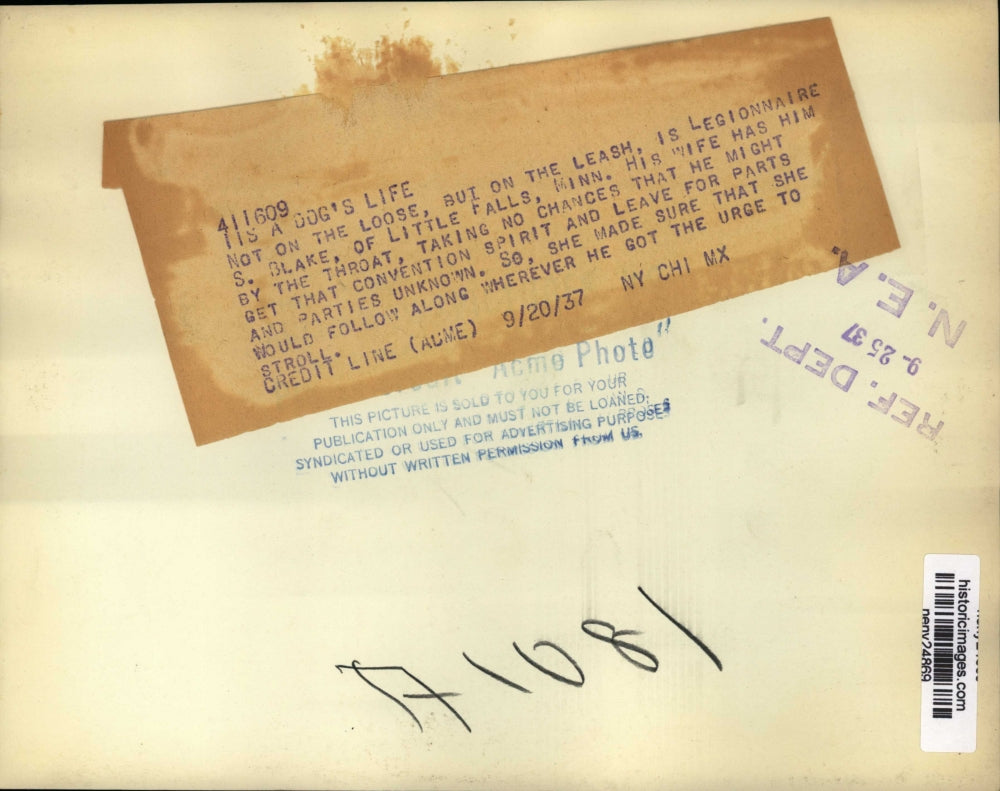 411609
'TIS A DOG'S LIFE
NOT ON THE LOOSE, BUT ON THE LEASH, IS LEGIONNAIRE
S. BLAKE, OF LITTLE FALLS, MINN. HIS WIFE HAS HIM
BY THE THROAT, TAKING NO CHANCES THAT HE MIGHT
GET THAT CONVENTION SPIRIT AND LEAVE FOR PARTS
AND PARTIES UNKNOWN. SO, SHE MADE SURE THAT SHE
WOULD FOLLOW ALONG WHEREVER HE GOT THE URGE TO
STROLL.
CREDIT LINE (ACME) 9/20/37 NY CHI MX
"Acme Photo"
THIS PICTURE IS SOLD TO YOU FOR YOUR
PUBLICATION ONLY AND MUST NOT BE LOANED,
SYNDICATED OR USED FOR ADVERTISING PURPOSES
WITHOUT WRITTEN PERMISSION FROM US.
REF. DEPT.
9-25 37
N. E. A.
A1081
historicimages.com
neny24869